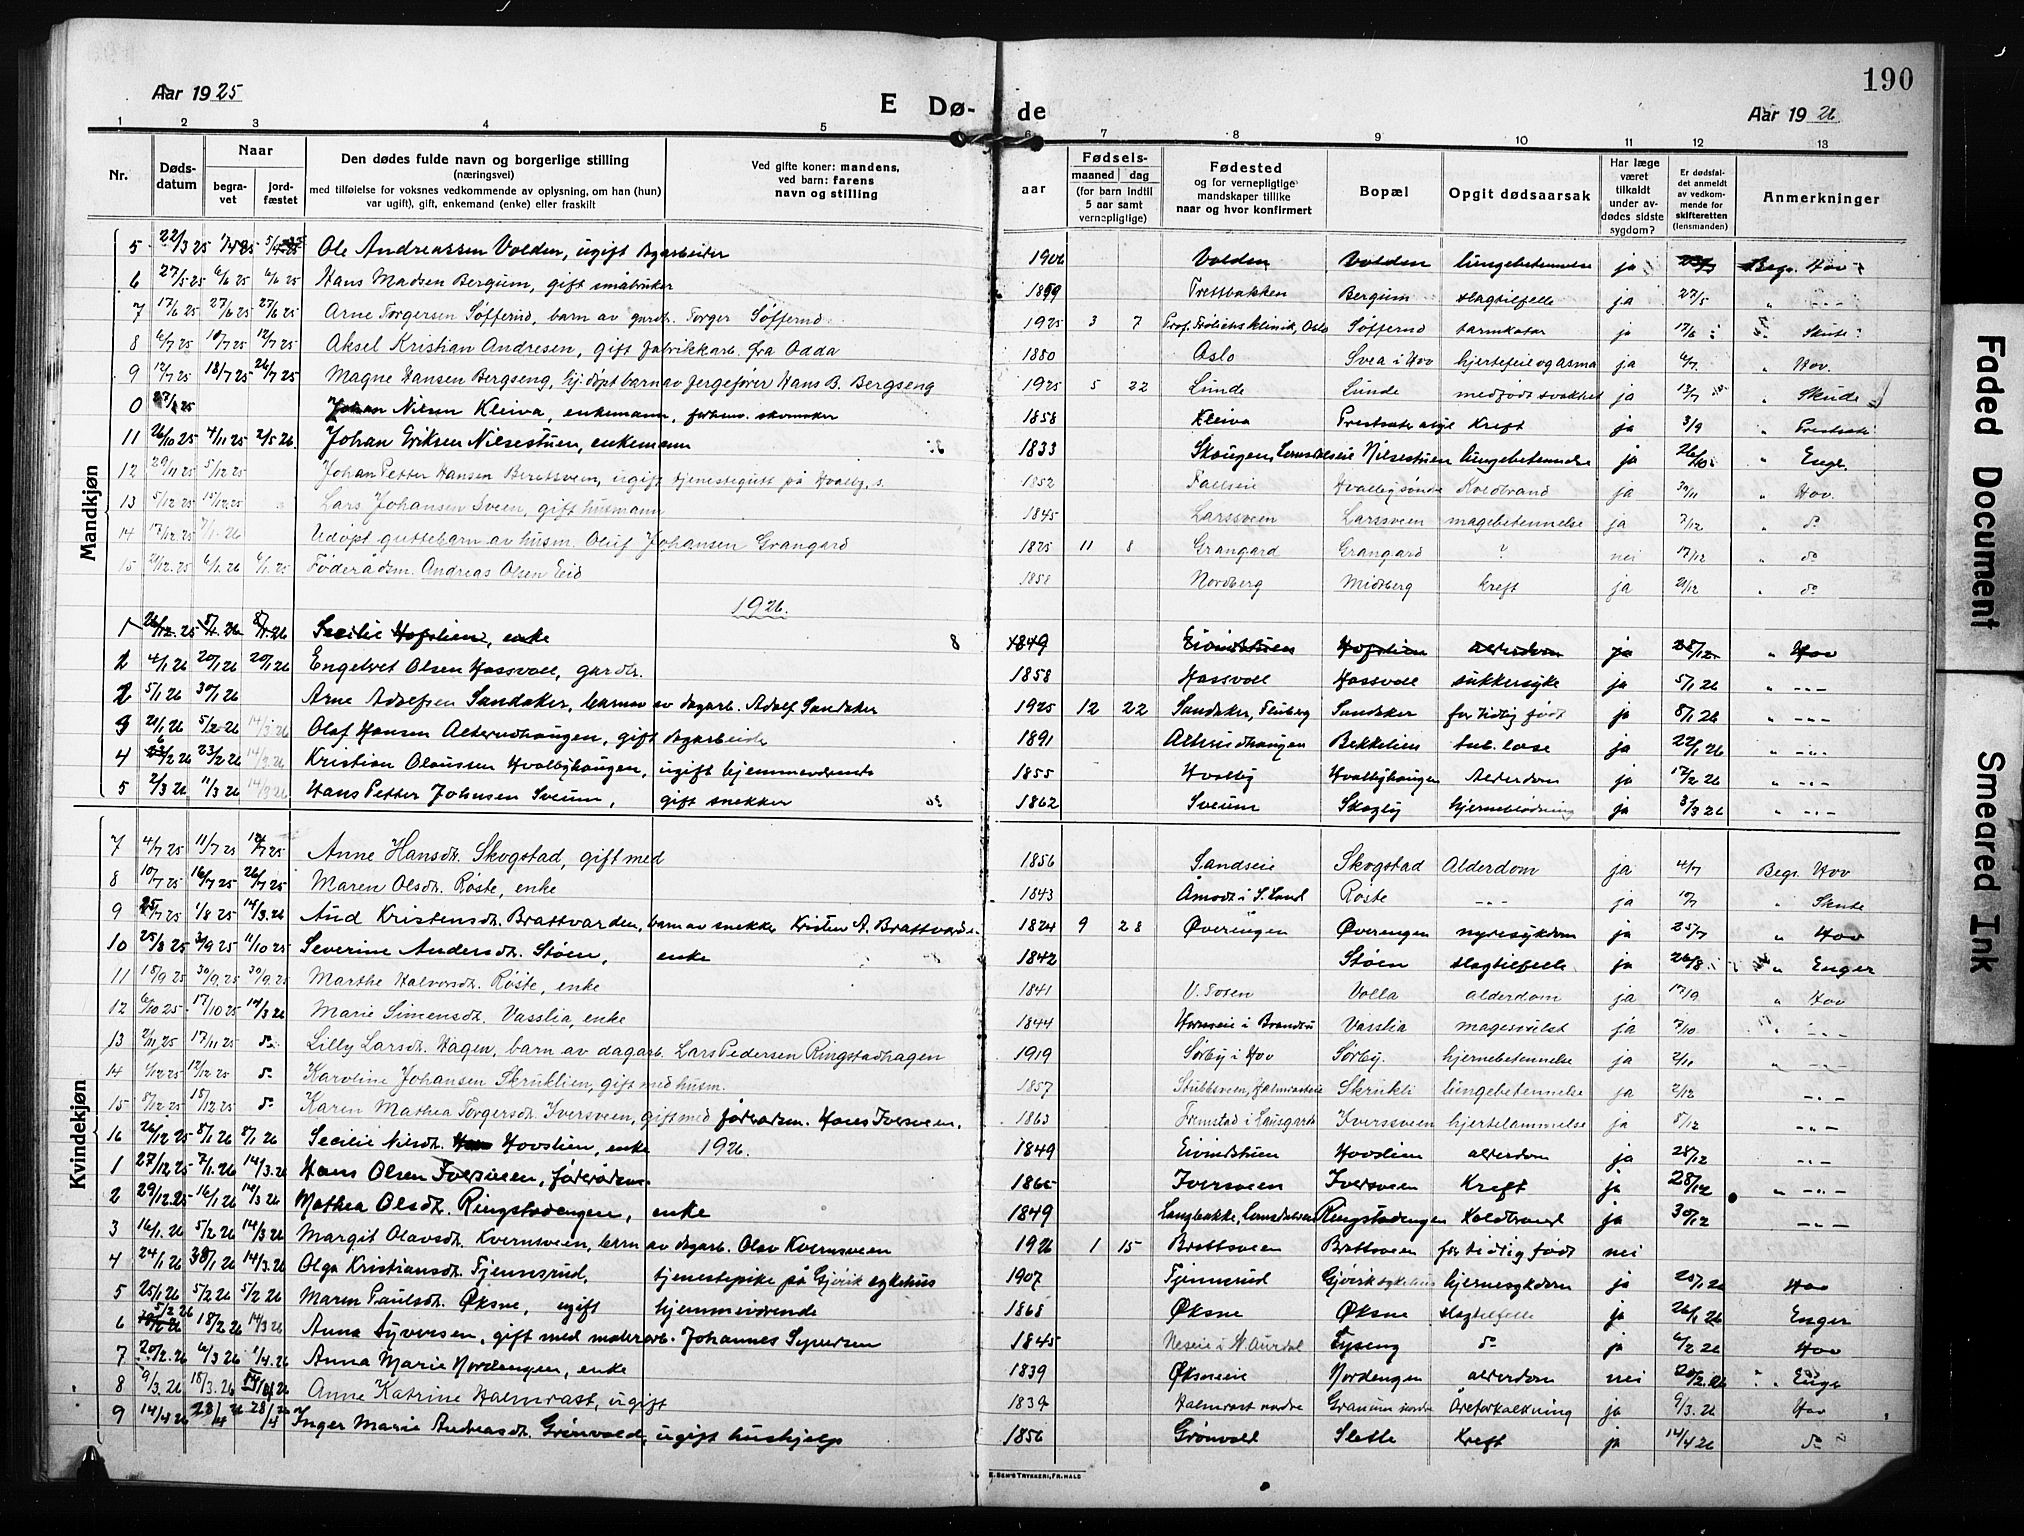 190
Aar 1925
E Dø- de
Aar 1926
1 2 3 4 5 6 7 8 9 10 11 12 13
Nr. Døds-datum Naar begra-vet jord-fæstet Den dødes fulde navn og borgerlige stilling (næringsvei) med tilføielse for voksnes vedkommende av oplysning, om han (hun) var ugift), gift, enkemand (enke) eller fraskilt Ved gifte koner: mandens, ved barn: farens navn og stilling aar Fødsels- maaned dag (for barn indtil 5 aar samt vernepligtige) Fødested og for vernepligtige mandskaper tillike naar og hvor konfirmert Bopæl Opgit dødsaarsak Har læge været tilkaldt under av-dødes sidste sygdom? Er dødsfal-det anmeldt av vedkom-mende for skifteretten (lensmanden) Anmerkninger
Mandkjøn
5 22/3 25 Ole Andreassen Volden, ugift dagarbeider 1906 Volden Volden lungebetennelse ja Begr. Hov
6 27/5 25 6/6 25 6/6 25 Hans Madsen Bergum, gift småbruker 1859 Trettbakken Bergum slagtilfelle ja 27/5 " -"-
7 17/6 25 27/6 25 27/6 25 Arne Torgersen Søffernd, barn av gardbr. Torger Søffernd 1925 3 7 Prof. Frølichs klinik, Oslo Søffernd tarmkatar ja 17/6 " Skute
8 6/7 25 10/7 25 12/7 25 Aksel Kristian Andresen, gift fabrikkarb. fra Odda 1880 Oslo Svea i Hov hjertefeil og asma ja 6/7 " Hov.
9 12/7 25 18/7 25 26/7 25 Magne Hansen Bergseng, hj. døpt barn av fergefører Hans B. Bergseng 1925 5 22 Lunde Lunde medfødt svakhet ja 13/7 " Skude
0 Johan Nilsen Kleiva, enkemann, forhenv. skomaker 1858 Kleiva Kreft ja 3/9 "
11 26/10 25 4/11 25 2/5 26 Johan Eriksen Nilsestuen, enkemann 1833 Skougen, Nilsestuen lungebetennelse ja 26/10 " Enge.
12 29/11 25 5/12 25 Johan Petter Hansen Beretsveen, ugift tjenestegutt på Hvalby, s. 1852 Fallseie Hvalby søndre Koldbrand ja 30/11 " Hov.
13 5/12 25 12/12 25 Lars Johansen Sveen, gift husmann 1845 Larssveen Larssveen magebetennelse ja 7/12 " do
14 17/12. 25 7/1. 26 Udøpt guttebarn av husm. Oluf Johansen Grangard 1825 11 8 Grangard Grangard ? nei 17/12 " do
15 21/12. 25 6/1. 26 6/1. 26 Føderådsm. Andreas Olsen Eid 1858 Nordberg Midtberg kreft ja 21/12 " do
1926.
1 26/12. 25 8/1. 26 8/1. 26 Secilie Hofslien, enke 8 1849 Eivindstuen Hofslien alderdom ja 28/12. " Hov
2 4/1 26 20/1 26 20/1 26 Engebret Olsen Hassvoll, gardbr. 1858 Hassvoll Hassvoll sukkersyke ja 5/1 26 " -"-
2 5/1 26 30/1 26 Arne Adolfsen Sandaker, barn av dagarb. Adolf Sandaker 1925 12 22 Sandaker, Fluberg Sandaker for tidlig født ja 8/1 26 " -"-
3 21/1 26 5/2 26 14/3 26 Olaf Hansen Alterudhaugen, gift dagarbeider 1891 Altrudhaugen Bekkelien tub. lose ja 22/1 26 " -"-
4 23/2 26 14/3. 26 Kristian Olaussen Hvalbyhaugen, ugift hjemmeværende 1855 Hvalby Hvalbyhaugen Alderdom ja 17/2 26 " -"-
5 2/3 26 11/3 26 14/3 26 Hans Petter Johnsen Sveum, gift snekker 1862 Sveum Skogly hjerneblødning ja 3/3 26 " -"-
Kvindekjøn
7 4/7 25 11/7 25 12/7 25 Anne Hansdtr. Skogstad, gift med 1856 Sandseie Skogstad Alderdom ja 4/7 Begr. Hov
8 10/7 25 16/7 25 26/7 25 Maren Olsdtr. Røste, enke 1843 Åmodt i S. Land Røste -"- ja 10/7 " Skute
9 25/7 25 1/8 25 14/3. 26 Aud Kristensdtr. Brattvarden, barn av snekker Kristen A. Brattvarden 1824 9 28 Øveringen Øverengen nyresykdom ja 25/7 " Hov
10 25/8 25 3/9 25 11/10 25 Severine Andersdtr. Støen, enke 1842 Støen slagtilfelle ja 26/8 " Enger
11 15/9 25 30/9. 25 30/9. 25 Marthe Halvorsdtr. Røste, enke 1841 V. Toten Volla alderdom ja 17/9 " Hov
12 6/10 25 17/10 25 14/3 26 Marie Simensdtr. Vasslia, enke 1844 Hornseie i Brandbu Vasslia magesvulst ja 7/10 " -"-
13 2/11 25 17/11 25 do Lilly Larsdtr. Hagen, barn av dagarb. Lars Pedersen Ringstadhagen 1919 Sørby i Hov Sørby. hjernebetennelse ja 2/11 " -"-
14 1/12 25 12/12 25 do Karoline Johansen Skruklien, gift med husm. 1857 Stubbsveen, Skrukli lungebetennelse ja 2/12 -"-
15 8/12 25 15/12 25 do Karen Mathea Torgersdtr. Iversveen, gift med føderådsm. Hans Iversveen. 1863 Fremstad i Hausgarda Iverssveen hjertelammelse ja 8/12 -"-
16 26/12 25 8/1 26 8/1. 26 Secilie Nilsdtr. Hovslien, enke 1926. 1849 Eivindstuen Hovslien alderdom ja 28/12 -"-
1 27/12 25 7/1. 26 14/3. 26 Hans Olsen Iversveen, føderådsm. Iversveen Iversveen Kreft ja 28/12 " -"-
2 29/12. 25 16/1 26 14/3 26 Mathea Olsdtr. Ringstadengen, enke 1849 Langbakke, Ringstadengen Koldbrand ja 30/12 -"-
3 16/1. 26 5/2 26 14/3 26 Margit Olavsdtr. Kvernsveen, barn av dagarb. Olav Kvernsveen 1926 1 15 Brattsveen Brattsveen for tidlig født nei
4 24/1 26 30/1 26 14/3. 26 Olga Kristiansdtr. Tjennerud, tjenestepike på Gjøvik sykehus 1907 Tjennerud Gjøvik sykehus hjernesykdom ja 25/1 26 Hov
5 25/1 26 5/2 26 5/2 26 Maren Paulsdtr. Øksne, ugift hjemmeværende 1868 Øksne Øksne slagtilfelle ja 26/1 26 Enger
6 5/2 26 18/2 26 14/3 26 Anna Syversen, gift med malerarb. Johannes Syversen 1845 Neseie i N. Aurdal Lyseng do ja 6/2 26 Hov
7 20/2. 26 6/3 26 1/4. 26 Anna Marie Nordengen, enke 1839 Øksneeie Nordengen alderdom nei 20/2. 26 " Enge
8 9/3. 26 18/3. 26 Anne Katrine Halmrast, ugift 1839 Halmrast nordre Granum nordre Åreforkalkning ja 9/3. 26 " Hov
9 14/4 26 28/4 26 28/4 26 Inger Marie Andreasdtr. Grønvold, ugift hushjelp 1856 Grønvold Slette Kreft ja 14/4 26 do
E. SEM'S TRYKKERI, FR.HALD
Faded Document
Smeared Ink